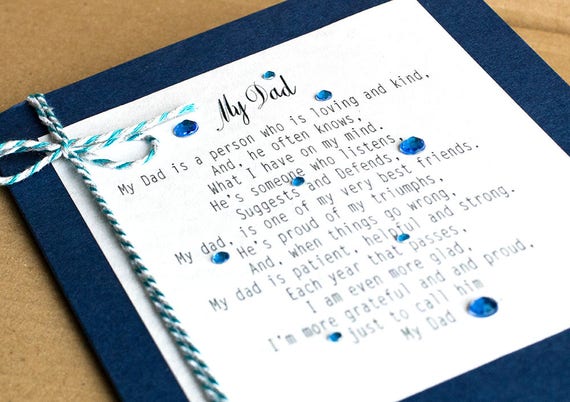 My Dad
My Dad is a person who is loving and kind,
And, he often knows,
What I have on my mind.
He's someone who listens,
Suggests and Defends,
My dad, is one of my very best friends.
He's proud of my triumphs,
And, when things go wrong,
My dad is patient, helpful and strong.
Each year that passes,
I am even more glad,
I'm more grateful and and proud,
just to call him
My Dad